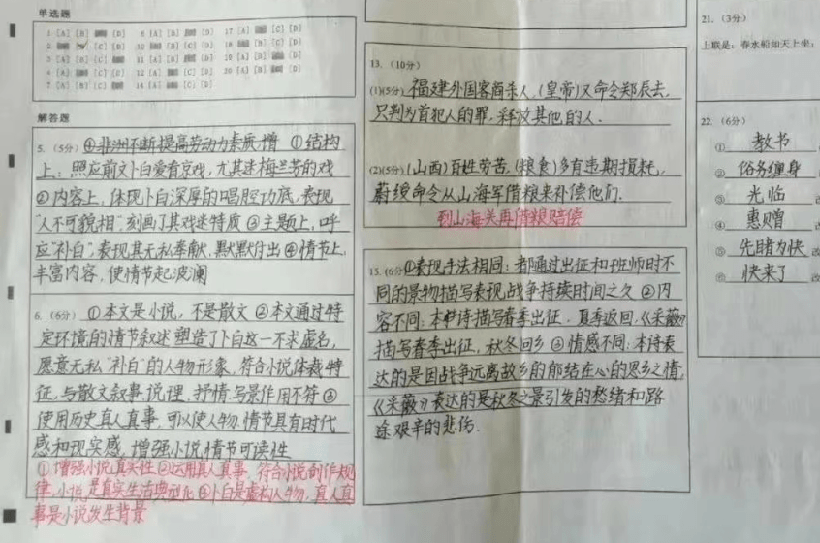 单选题
解答题
5. （5分）④非洲不断提高劳动力素质,增 ①结构
上:照应前文卜白爱看京戏,尤其迷梅兰芳的戏
②内容上,体现卜白深厚的唱腔功底,表现
"人不可貌相",刻画了其戏迷特质③主题上,呼
应"补白",表现其无私奉献,默默付出④情节上,
丰富内容,使情节起波澜
6. （6分）①本文是小说，不是散文②本文通过特
定环境的情节叙述塑造了卜白这一不求虚名,
愿意无私"补白"的人物形象,符合小说体裁特
征,与散文叙事说理,抒情写景作用不符③
使用历史真人真事,可以使人物,情节具有时代
感和现实感,增强小说情节可读性
①增强小说真实性②运用真人真事,符合小说创作规
律,小说是真实生活典型化③卜白是虚构人物,真人真
事是小说发生背景
13. （10分）
(1)(5分)福建外国客商杀人,(皇帝)又命令郑辰去,
只判为首犯人的罪,释放其他的人.
(2)(5分)(山西)百姓劳苦,(粮食)多有违期损耗,
蔚绶命令从山海军借粮来补偿他们.
到山海关再借粮赔偿
15. (6分)①表现手法相同:都通过出征和班师时不
同的景物描写表现战争持续时间之久②内
容不同:本诗描写春季出征,夏季返回,《采薇》
描写春季出征,秋冬回乡③情感不同:本诗表
达的是因战争远离故乡的郁结在心的思乡之情,
《采薇》表达的是秋冬之景引发的愁绪和路
途艰辛的悲伤.
21. （3分）
上联是：春水船如天上坐；
22. （6分）
① 教书
② 俗务缠身
③ 光临
④ 惠赠
⑤ 先睹为快
⑥ 快来了